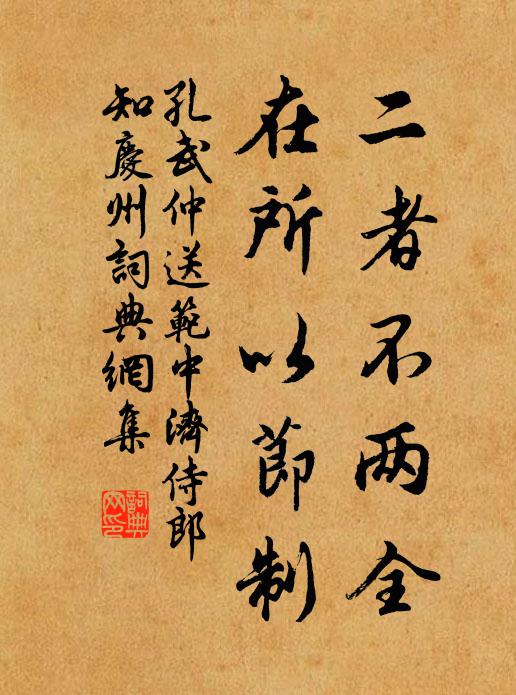 二者不两全
在所以節制
孔武仲送範中濟侍郎
知慶州詞典網集
詞典
网印